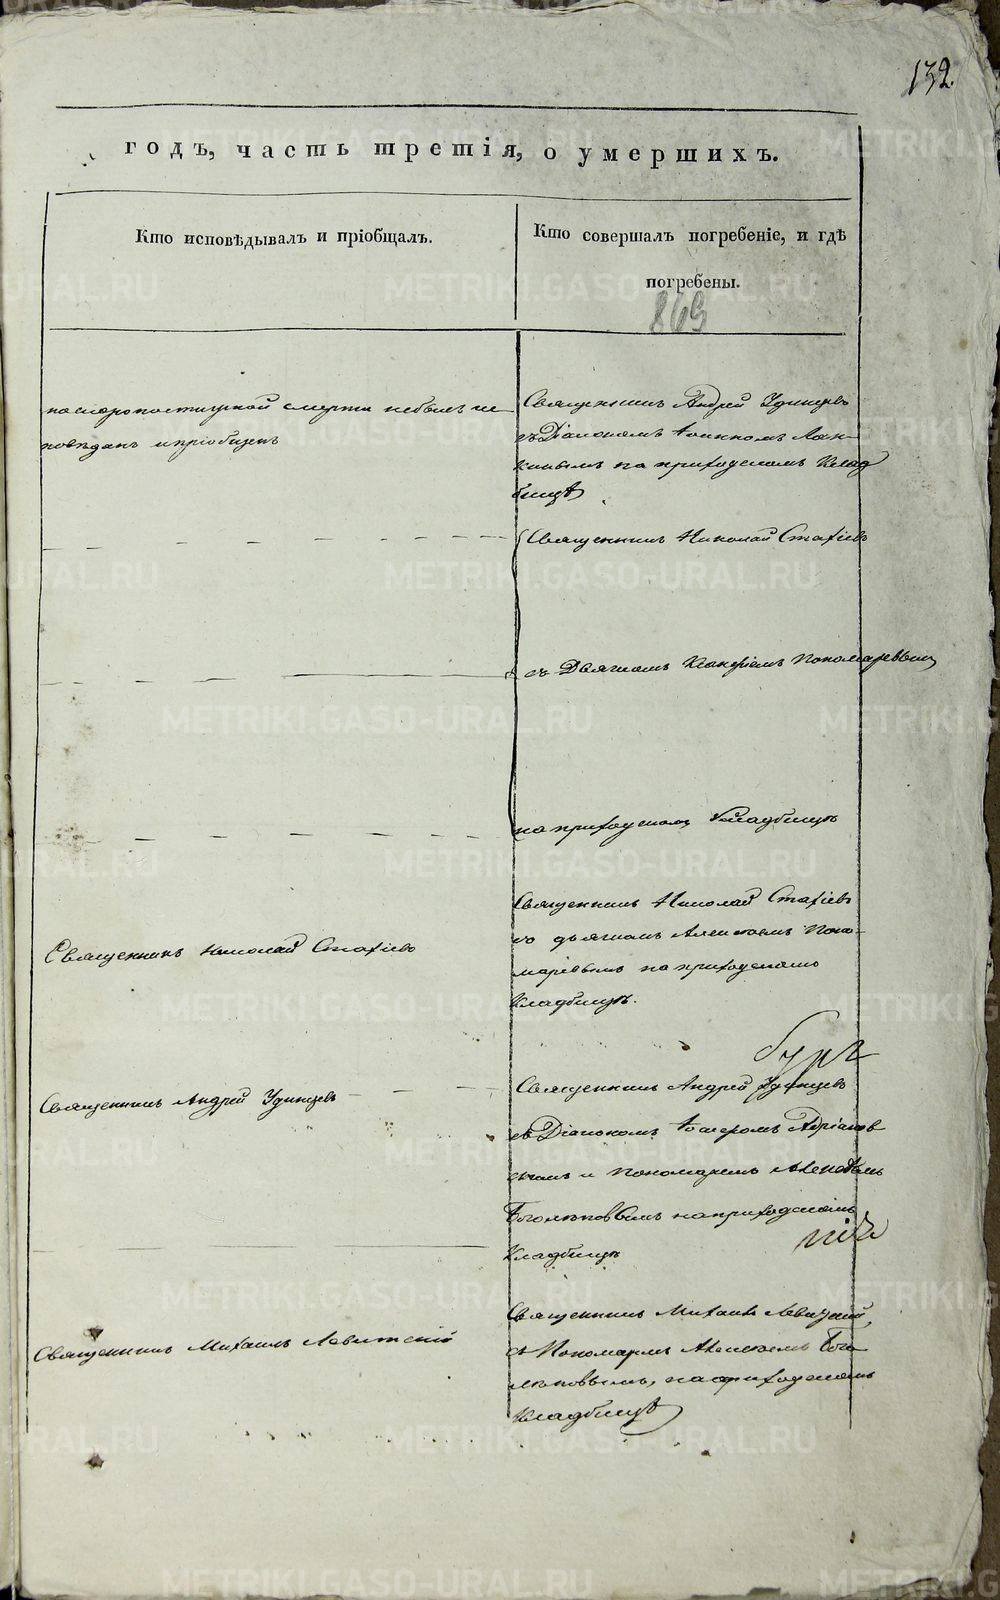 132.
годъ, часть третія, о умершихъ.
Кто исповѣдывалъ и пріобщалъ.
Кто совершалъ погребеніе, и гдѣ
погребены.
869
по скоропостижной смерти небылъ ис
повѣданъ и пріобщенъ
Священникъ Андрей Удинцевъ
съ Діакономъ
на приходскомъ Клад
бищѣ
Священникъ Николай Стахіевъ
съ Дьячкомъ Пономаревымъ
на приходскомъ Кладбищѣ
Священникъ Николай Стахіевъ
Священникъ Николай Стахіевъ
со дьячкомъ Алексѣемъ Поно-
маревымъ на приходскомъ
Кладбищѣ.
Священникъ Андрей Удинцевъ
Священникъ Андрей Удинцевъ
съ Діакономъ Адріанов
скимъ и Пономаремъ Алексѣемъ
Боголѣповымъ на приходскомъ
Кладбищѣ
Священникъ Михаилъ Левитскій
Священникъ Михаилъ Левицкій,
съ Пономаремъ Алексѣемъ Бого
лѣповымъ, на приходскомъ
Кладбищѣ
METRIKI.GASO-URAL.RU